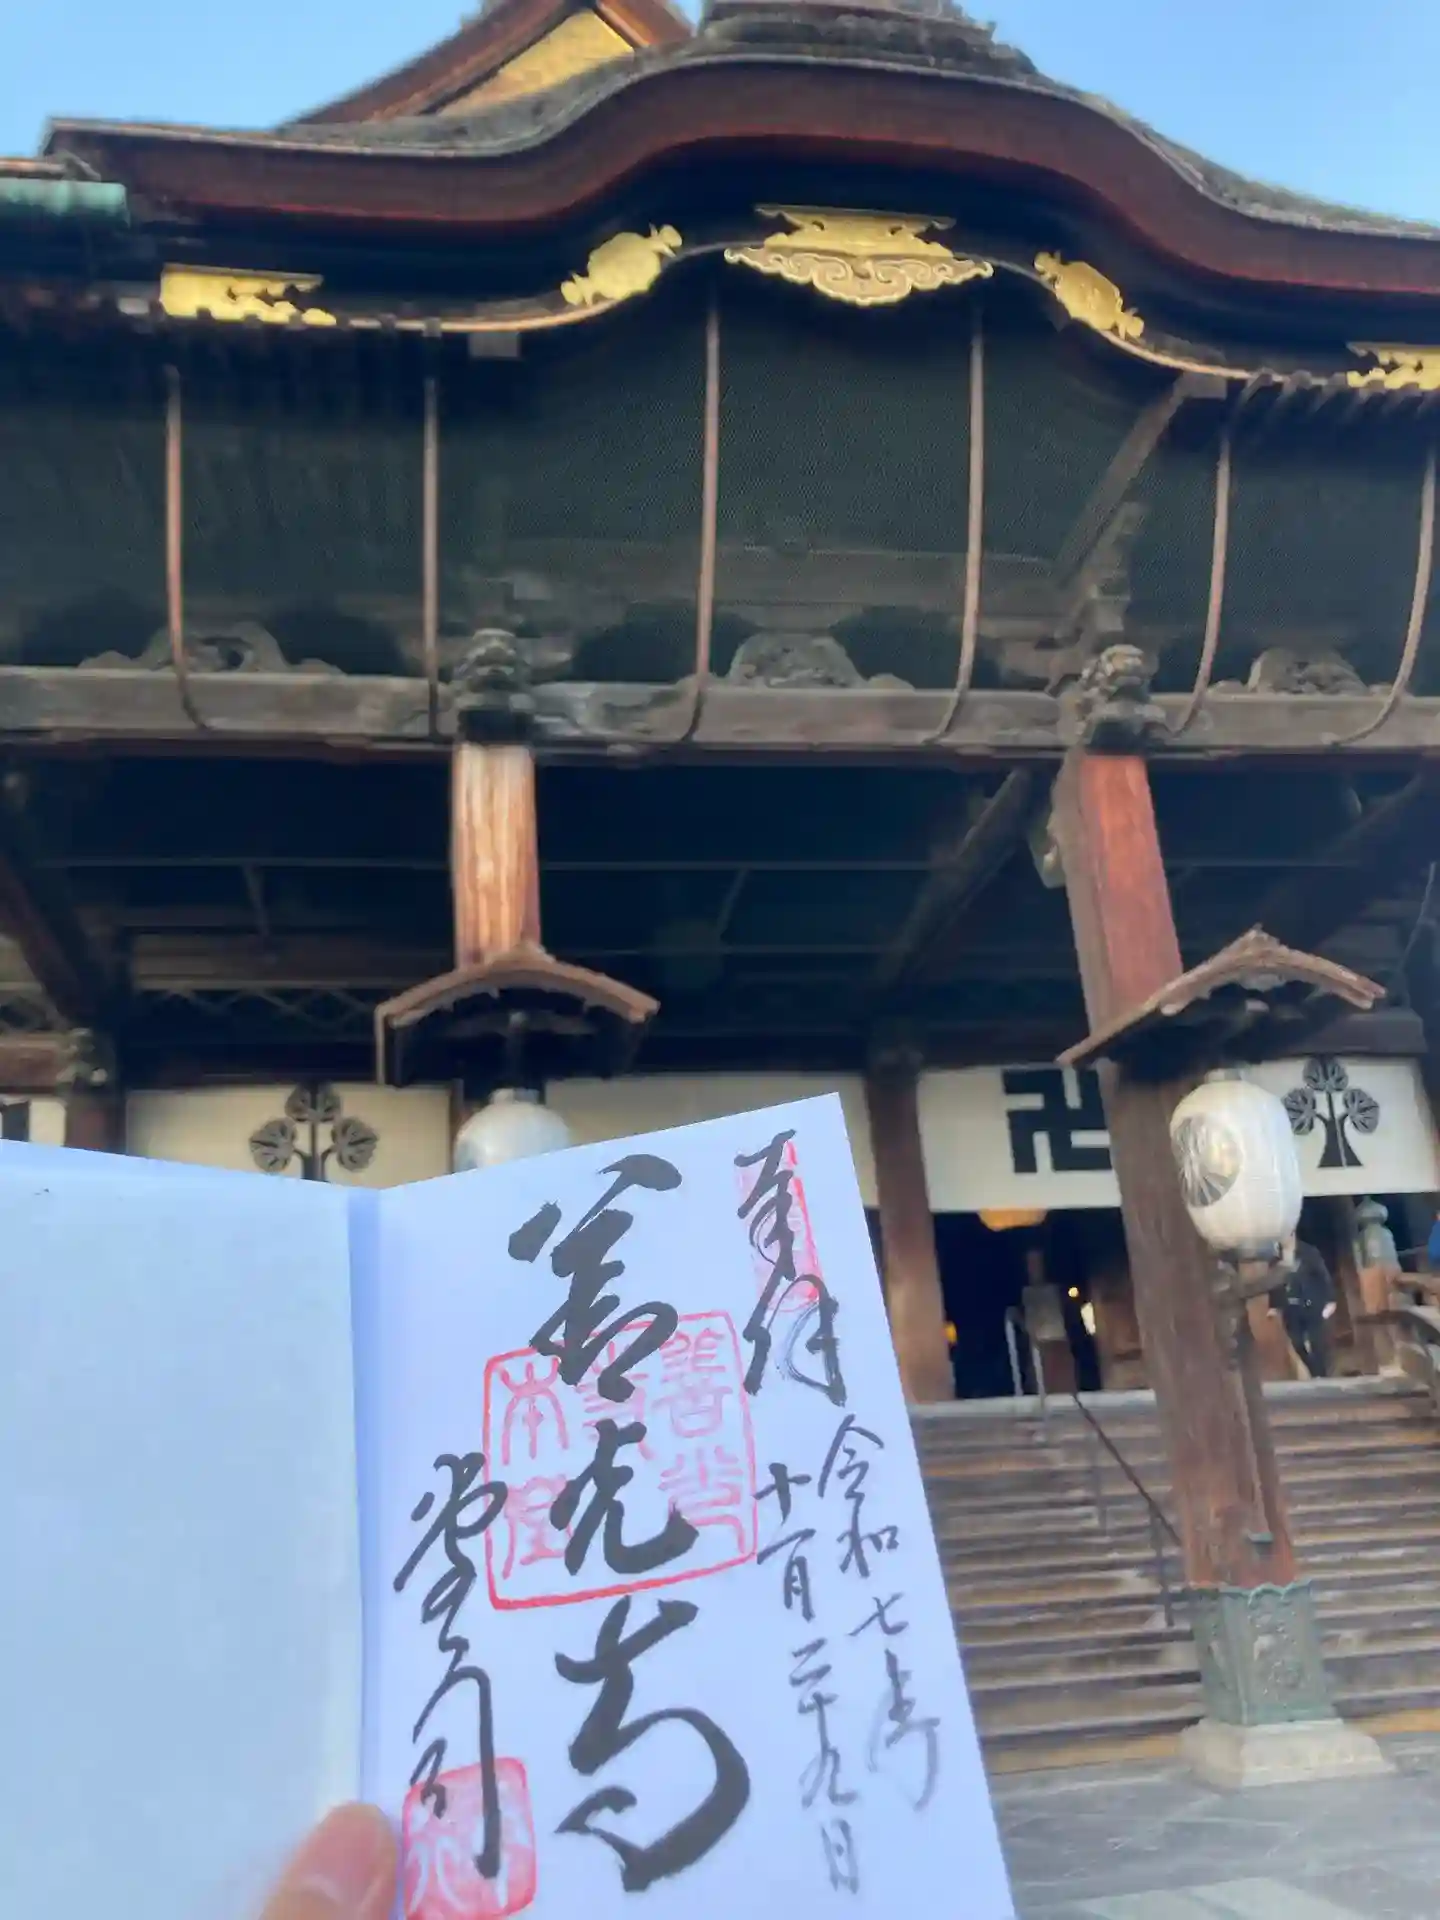 奉拝
令和七年
十一月二十九日
善光寺
堂司
善光
本堂
卍